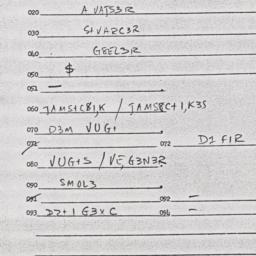 020 A VATS3R
030 S+VARC3R
040 GEEL3R
050 $
051 —
060 JAMS+C81,K / JAMS8C+1,K3S
070 D3M VUG+
071 072 D1 F1R
080 VUG+S / VE,G3N3R
090 SMOL3
091 092 —
093 D2+1 G3XC 094 —